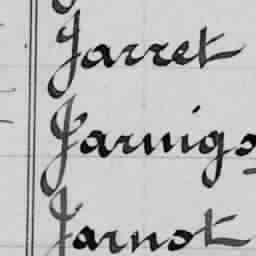 Jarret
Jarnigo
Jarnot